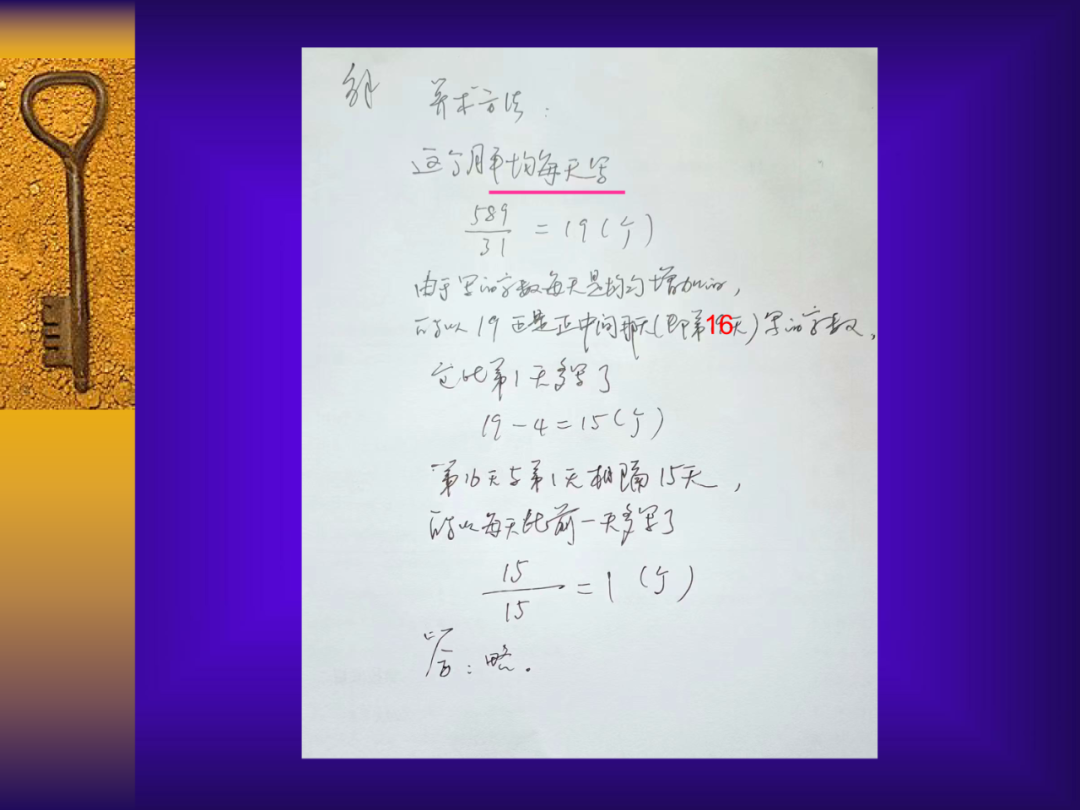 解 算术方法:
这个月平均每天写
589/31 = 19(个)
由于写的字数每天是均匀增加的,
所以 19 也是正中间那天(即第16天)写的字数,
它比第1天多写了
19-4=15(个)
第16天与第1天相隔15天,
所以每天比前一天多写了
15/15=1(个)
答:略。